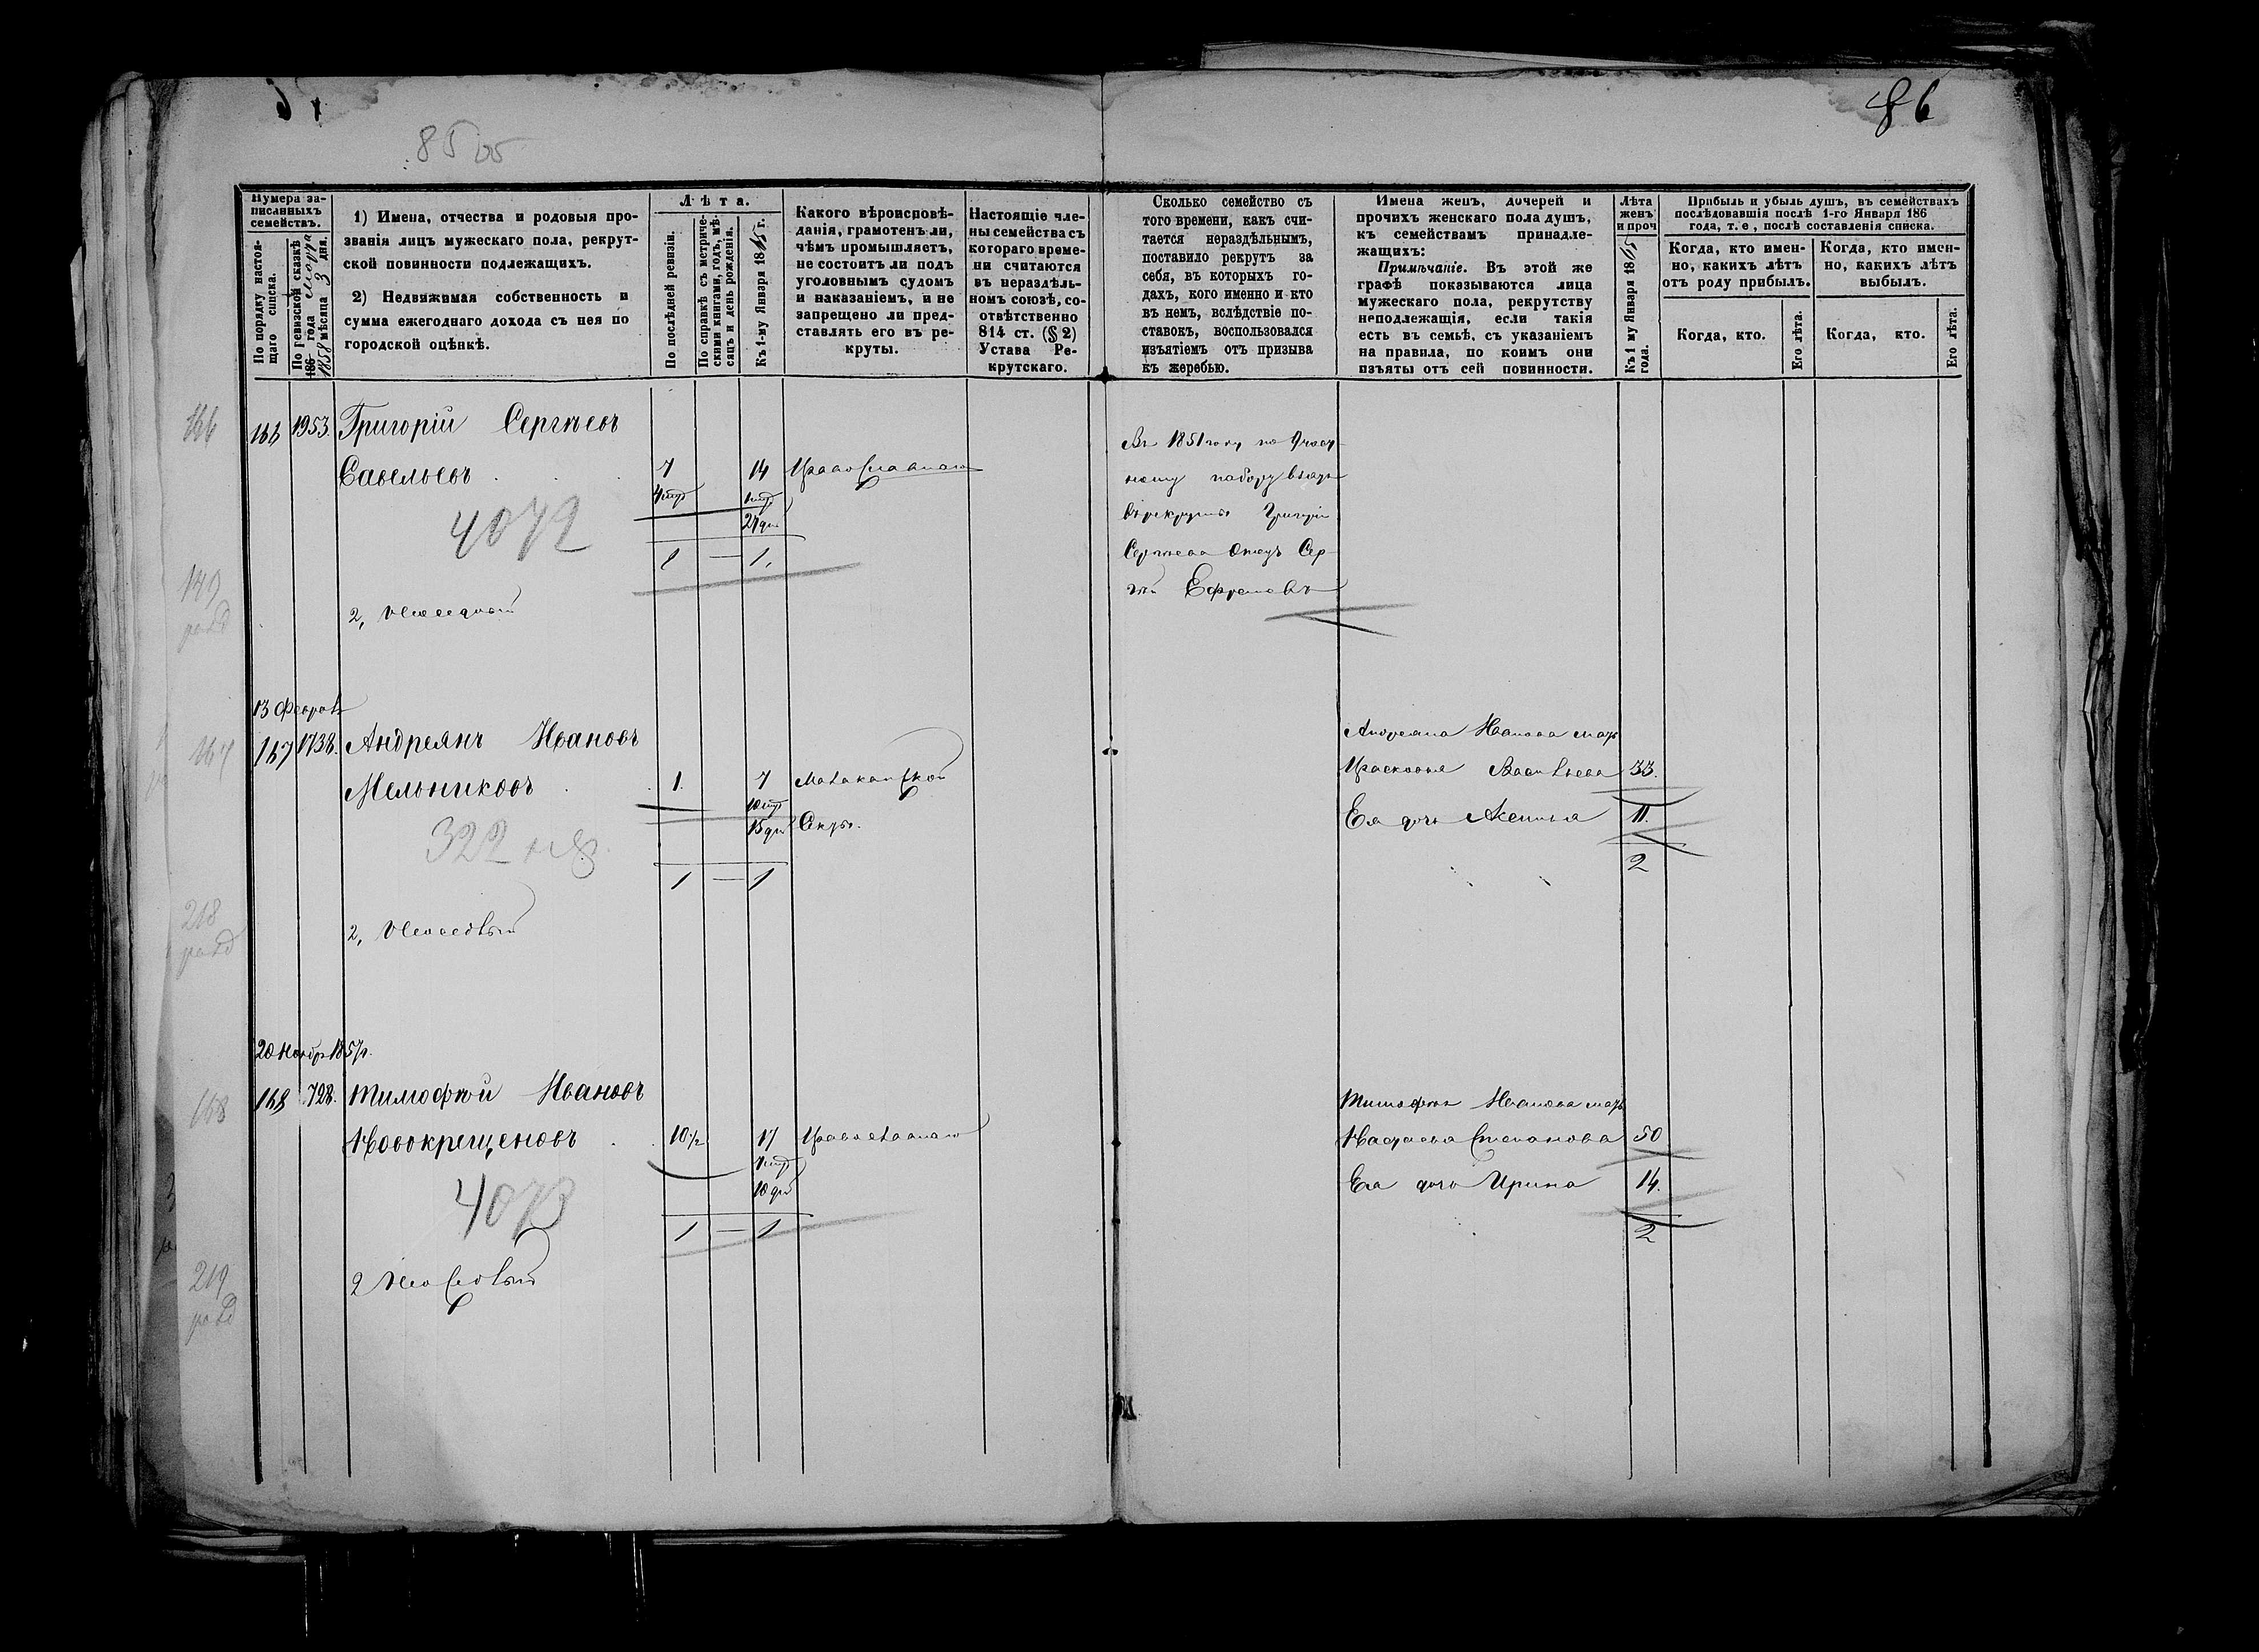 86
85 об
Нумера за-
писанныхъ
семействъ.
По порядку настоя-
щаго списка.
По ревизской сказкѣ
186 года Марта
1858 мѣсяца 3 дня.
1) Имена, отчества и родовыя про-
званія лицъ мужескаго пола, рекрут-
ской повинности подлежащихъ.
2) Недвижимая собственность и
сумма ежегоднаго дохода съ нея по
городской оцѣнкѣ.
Лѣта.
По послѣдней ревизіи.
По справкѣ съ метриче-
скими книгами, годъ, мѣ-
сяцъ и день рожденія.
Къ 1-му Января 1865 г.
Какого вѣроисповѣ-
данія, грамотенъ ли,
чѣмъ промышляетъ,
не состоитъ ли подъ
уголовнымъ судомъ
и наказаніемъ, и не
запрещено ли пред-
ставлять его въ ре-
круты.
Настоящіе чле-
ны семейства съ
котораго време-
ни считаются
въ нераздѣль-
номъ союзѣ, со-
отвѣтственно
814 ст. (§ 2)
Устава Ре-
крутскаго.
Сколько семейство съ
того времени, какъ счи-
тается нераздѣльнымъ,
поставило рекрутъ за
себя, въ которыхъ го-
дахъ, кого именно и кто
въ немъ, вслѣдствіе по-
ставокъ, воспользовался
изъятіемъ отъ призыва
къ жеребью.
Имена женъ, дочерей и
прочихъ женскаго пола душъ,
къ семействамъ принадле-
жащихъ:
Примѣчаніе. Въ этой же
графѣ показываются лица
мужескаго пола, рекрутству
неподлежащія, если такія
есть въ семьѣ, съ указаніемъ
на правила, по коимъ они
изъяты отъ сей повинности.
Лѣта
женъ
и проч
Къ 1 му Января 1865
года.
Прибыль и убыль душъ, въ семействахъ
послѣдовавшія послѣ 1-го Января 186
года, т. е, послѣ составленія списка.
Когда, кто имен-
но, какихъ лѣтъ
отъ роду прибылъ.
Когда, кто имен-
но, какихъ лѣтъ
выбылъ.
Когда, кто.
Его лѣта.
Когда, кто.
Его лѣта.
166
166 1953. Григорій Сергѣевъ
Савельевъ 7 14 Православнаго
4 мѣс
4072
1 — 1.
149
2,
Въ 1851 году по
ному набору взятъ
въ рекруты Григорія
Сергѣева Отецъ Сер-
гѣй Ефремовъ
13 Февраля
167
167 1738. Андреянъ Ивановъ
Мельниковъ 1. 7 Молоканской
10 мѣс
15 дн Секты.
322 мол.
1 — 1
218
2,
Андреяна Иванова мать
Прасковья Васильева 33.
Ея дочь Аксинья 11.
2
20 Ноября 1857 г.
168
168 728. Тимофѣй Ивановъ
Новокрещеновъ 10½ 17 Православнаго
10 дн
4073
1 — 1
219
2
Тимофѣя Иванова мать
Настасья Степанова 50
Ея дочь Ирина 14.
2